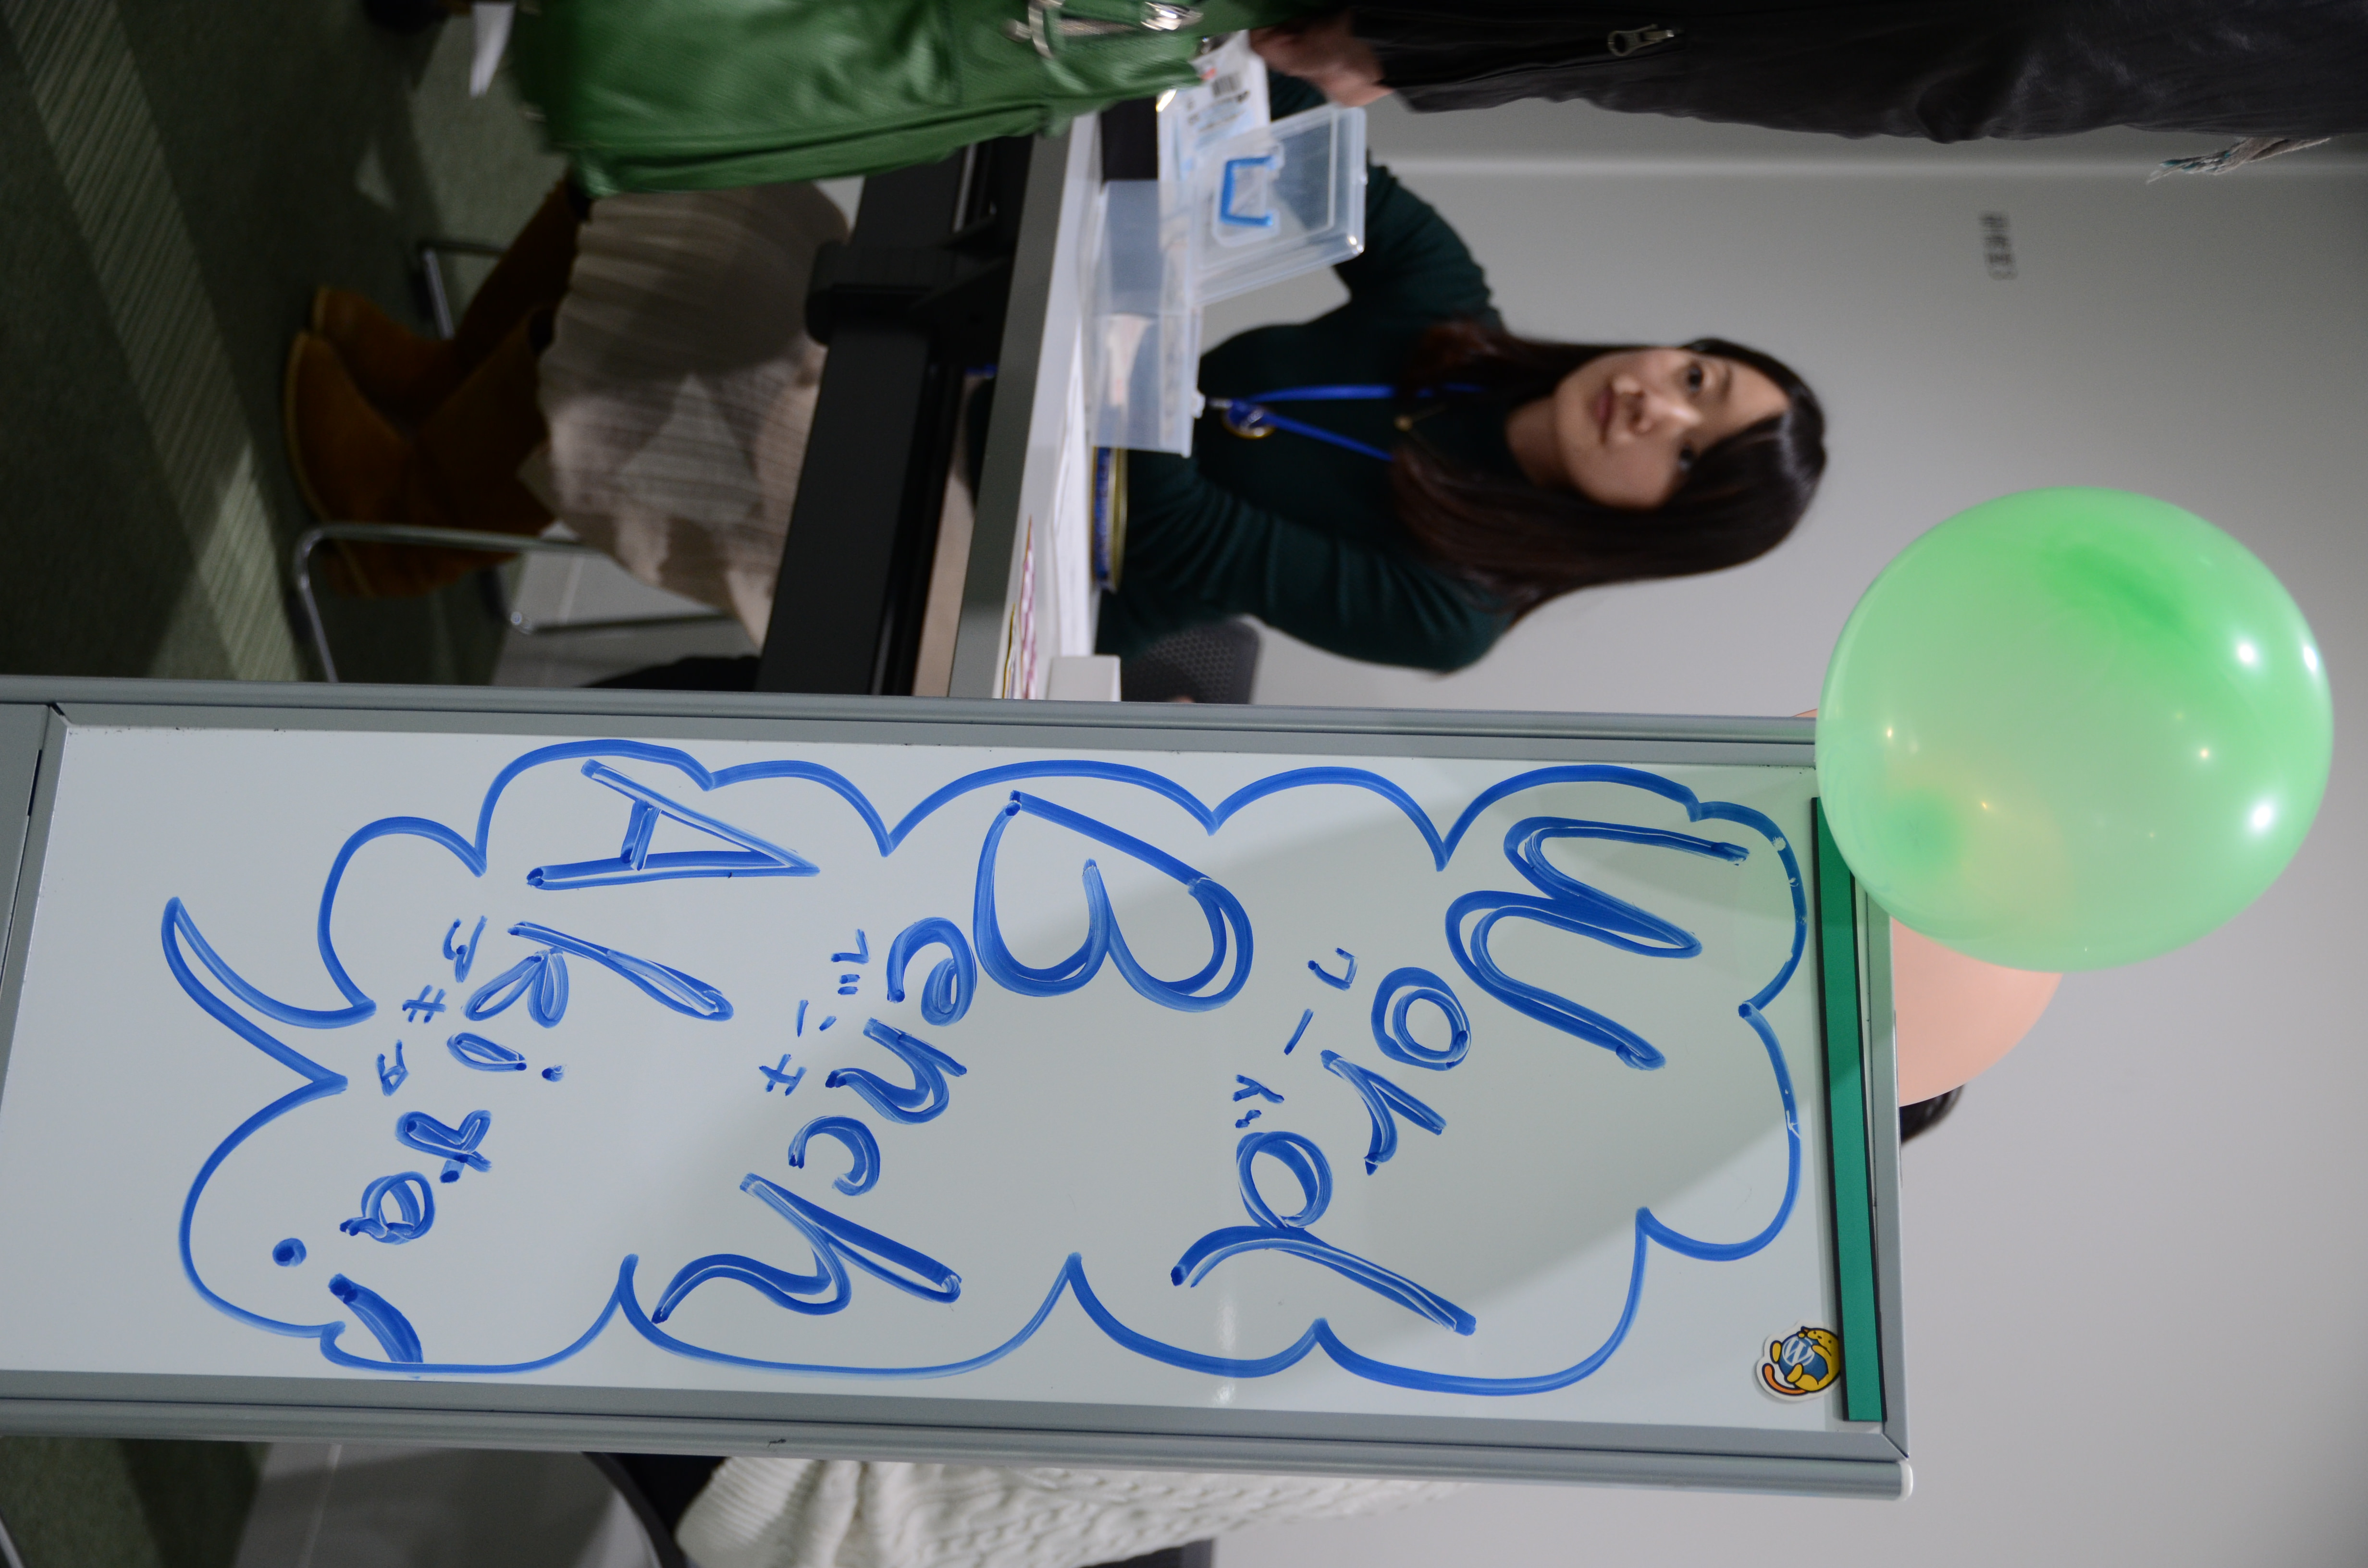 研修室3
Word
ワード
Bench
ベンチ
Akita!
アキタ
W